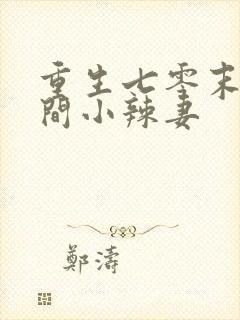 重生七零末
間小辣妻
鄭濤